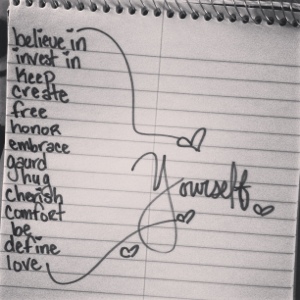 believe in
invest in
keep
create
free
honor
embrace
gaurd
hug
cherish
comfort
be
define
love
Yourself